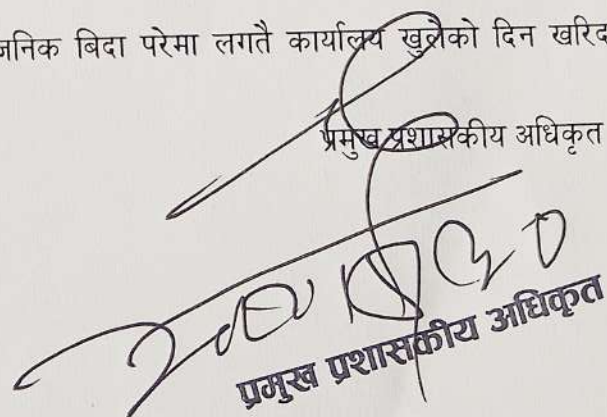 जनिक बिदा परेमा लगतै कार्यालय खुलेको दिन खरिद
प्रमुख प्रशासकीय अधिकृत
प्रमुख प्रशासकीय अधिकृत